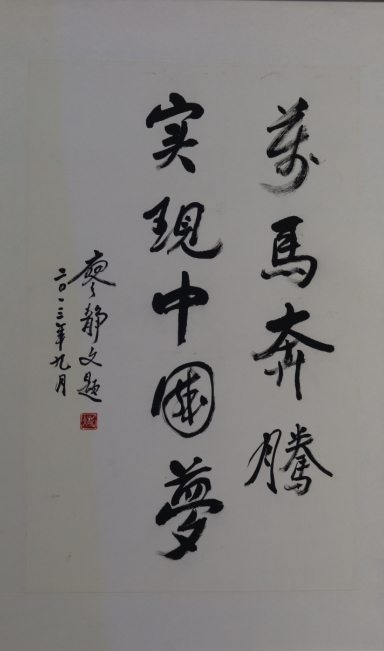 萬馬奔騰
实現中國夢
廖静文題
二〇一三年九月